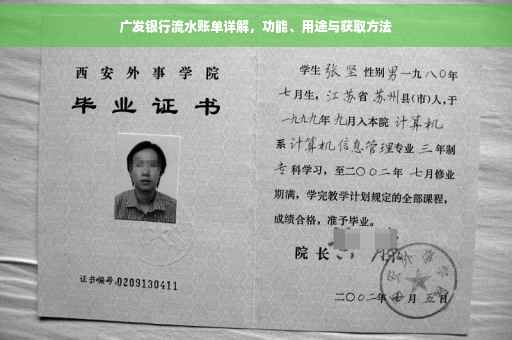 广发银行流水账单详解，功能、用途与获取方法
西安外事学院
毕业证书
证书编号:0209130411
学生 张坚 性别 男 一九八〇年
七月生，江苏省苏州县(市)人，于
一九九九年九月入本院 计算机
系 计算机信息管理 专业 三 年制
专科学习，至二〇〇二年 七月修业
期满，学完教学计划规定的全部课程，
成绩合格，准予毕业。
院长
二〇〇二年 七月五日